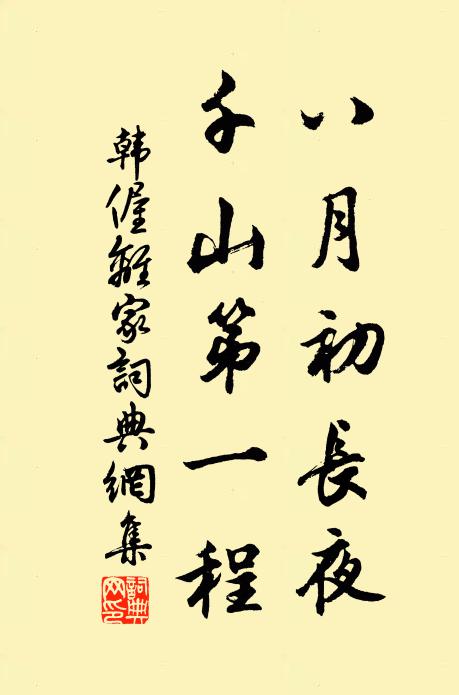 八月初長夜
千山第一程
韓偓離家詞典網集
詞典
网印